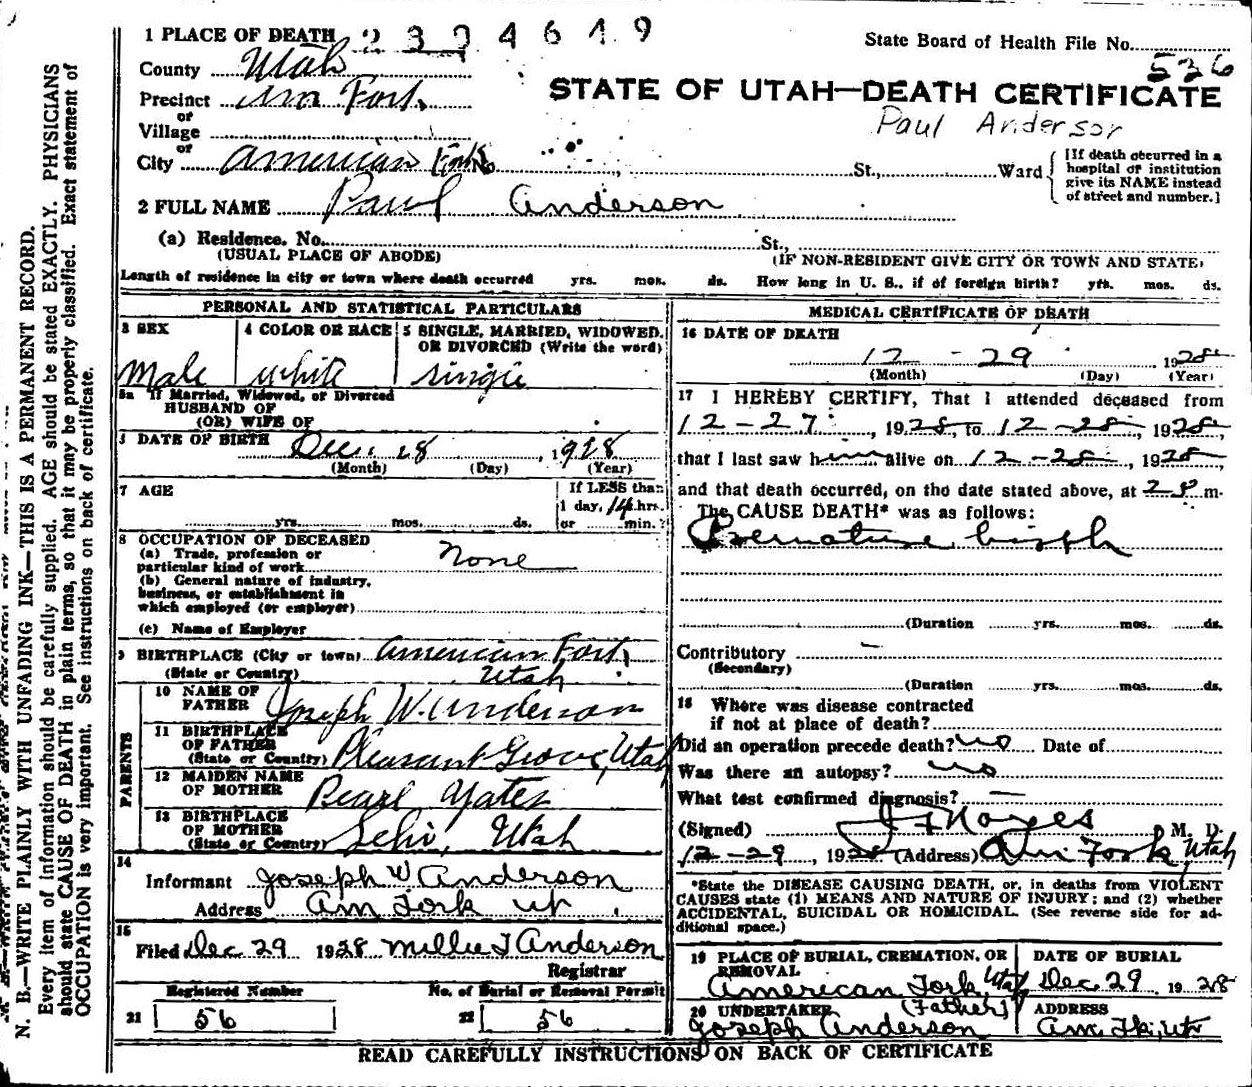 1 PLACE OF DEATH
State Board of Health File No.
536
County Utah
Precinct Am Fork
STATE OF UTAH—DEATH CERTIFICATE
or
Village
Paul Anderson
or
City American Fork No. St., Ward
[If death occurred in a hospital or institution give its NAME instead of street and number.]
2 FULL NAME Paul Anderson
(a) Residence. No. St.,
(USUAL PLACE OF ABODE) (IF NON-RESIDENT GIVE CITY OR TOWN AND STATE)
Length of residence in city or town where death occurred yrs. mos. ds. How long in U. S., if of foreign birth? yrs. mos. ds.
PERSONAL AND STATISTICAL PARTICULARS
3 SEX 4 COLOR OR RACE 5 SINGLE, MARRIED, WIDOWED, OR DIVORCED (Write the word)
Male white single
5a If Married, Widowed, or Divorced
HUSBAND OF
(OR) WIFE OF
DATE OF BIRTH Dec. 28, 1928
(Month) (Day) (Year)
7 AGE If LESS than
1 day, 14 hrs.
yrs. mos. ds. or min.?
8 OCCUPATION OF DECEASED
(a) Trade, profession or
particular kind of work None
(b) General nature of industry,
business, or establishment in
which employed (or employer)
(c) Name of Employer
9 BIRTHPLACE (City or town) American Fork,
(State or Country) Utah
PARENTS
10 NAME OF FATHER Joseph W. Anderson
11 BIRTHPLACE OF FATHER
(State or Country) Pleasant Grove, Utah
12 MAIDEN NAME OF MOTHER Pearl Yates
13 BIRTHPLACE OF MOTHER
(State or Country) Lehi, Utah
14
Informant Joseph W. Anderson
Address Am Fork Ut
15
Filed Dec 29 1928 Millie T Anderson
Registrar
Registered Number No. of Burial or Removal Permit
21 56 22 56
MEDICAL CERTIFICATE OF DEATH
16 DATE OF DEATH
12 - 29 1928
(Month) (Day) (Year)
17 I HEREBY CERTIFY, That I attended deceased from
12-27, 1928, to 12-28, 1928,
that I last saw him alive on 12-28, 1928,
and that death occurred, on the date stated above, at m.
The CAUSE DEATH* was as follows:
Premature birth
(Duration yrs. mos. ds.
Contributory —
(Secondary)
(Duration yrs. mos. ds.
18 Where was disease contracted
if not at place of death?
Did an operation precede death? no Date of
Was there an autopsy? no
What test confirmed diagnosis? —
(Signed) Noyes M. D.
12-29, 1928 (Address) Am Fork Utah
*State the DISEASE CAUSING DEATH, or, in deaths from VIOLENT
CAUSES state (1) MEANS AND NATURE OF INJURY; and (2) whether
ACCIDENTAL, SUICIDAL OR HOMICIDAL. (See reverse side for ad-
ditional space.)
19 PLACE OF BURIAL, CREMATION, OR REMOVAL DATE OF BURIAL
American Fork Utah Dec 29 1928
20 UNDERTAKER (Father) ADDRESS
Joseph Anderson Am. Fk, Ut
READ CAREFULLY INSTRUCTIONS ON BACK OF CERTIFICATE
N. B.—WRITE PLAINLY WITH UNFADING INK—THIS IS A PERMANENT RECORD.
Every item of information should be carefully supplied. AGE should be stated EXACTLY. PHYSICIANS
should state CAUSE OF DEATH in plain terms, so that it may be properly classified. Exact statement of
OCCUPATION is very important. See instructions on back of certificate.